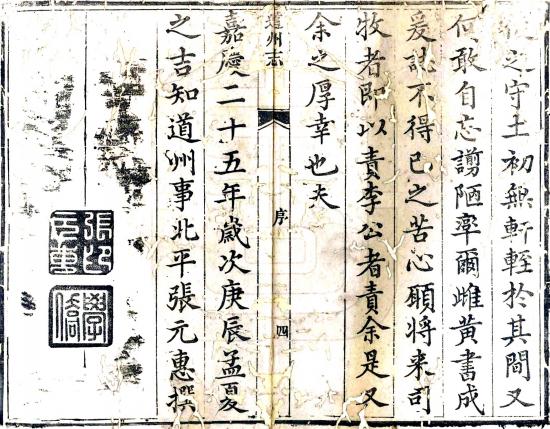 之守土初無軒輊於其間又
何敢自忘謭陋率爾雌黃書成
爰誌不得已之苦心願將來司
牧者即以責李公者責余是又
余之厚幸也夫
道州志
序
四
嘉慶二十五年歲次庚辰孟夏
之吉知道州事北平張元惠撰